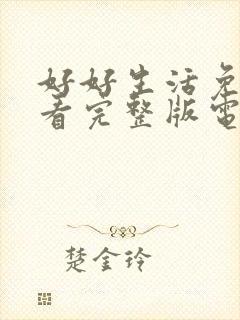 好好生活免
看完整版電
楚金玲